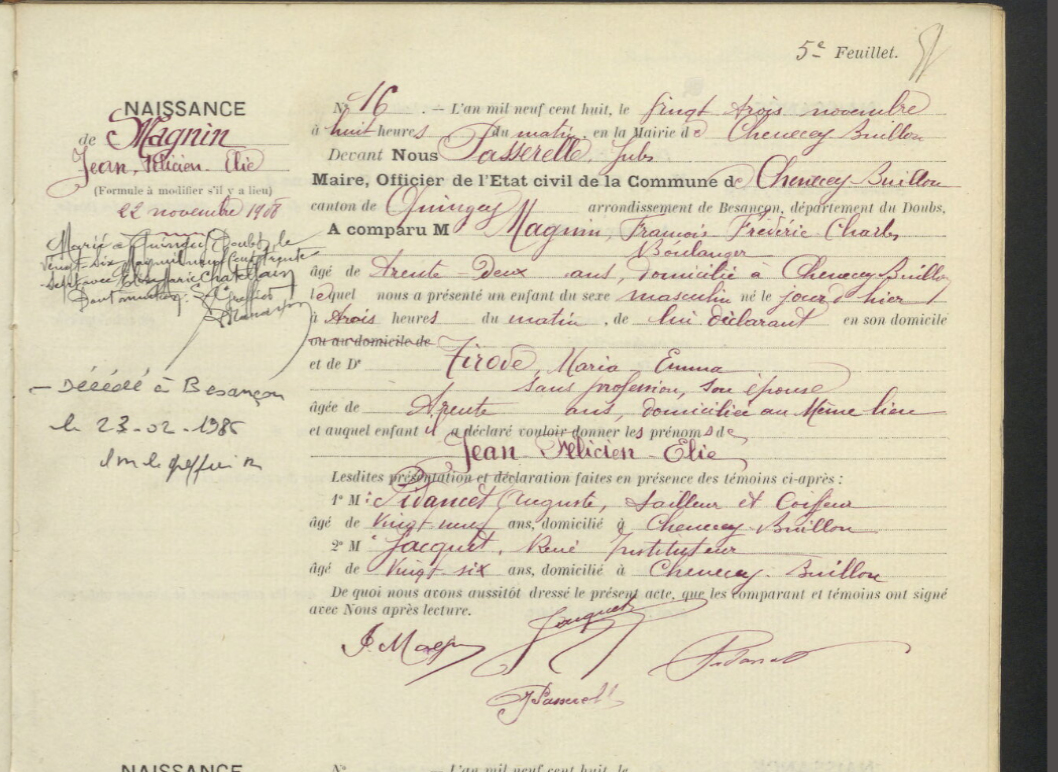 5e Feuillet.
NAISSANCE
de Magnin
Jean, Félicien - Elie
(Formule à modifier s'il y a lieu)
22 novembre 1908
Marié à Quingey (Doubs) le
vingt-six mil neuf cent trente
sept avec Marie Chatelain
Dont mention. Le Greffier
— Décédé à Besançon
le 23-02-198
N° 16 . — L'an mil neuf cent huit, le vingt trois novembre
à huit heures du matin, en la Mairie de Chenecey Buillon
Devant Nous Passerelle Jules
Maire, Officier de l'Etat civil de la Commune de Chenecey Buillon
canton de Quingey arrondissement de Besançon, département du Doubs,
A comparu M Magnin, François Frédéric Charles
Boulanger
âgé de trente-deux ans, domicilié à Chenecey Buillon
lequel nous a présenté un enfant du sexe masculin né le jour d'hier
à trois heures du matin, de lui déclarant en son domicile
ou au domicile de
et de De Tirode, Maria Emma
sans profession, son épouse
âgée de trente ans, domiciliée au Même lieu
et auquel enfant il a déclaré vouloir donner les prénoms de
Jean - Félicien - Elie
Lesdites présentation et déclaration faites en présence des témoins ci-après :
1° M : Pidancet Auguste, tailleur et Coiffeur
âgé de vingt neuf ans, domicilié à Chenecey-Buillon
2° M : Jacquet, René Instituteur
âgé de vingt-six ans, domicilié à Chenecey-Buillon
De quoi nous avons aussitôt dressé le présent acte, que les comparant et témoins ont signé
avec Nous après lecture.
Jacquet
Pidancet
NAISSANCE
N° — L'an mil neuf cent huit, le